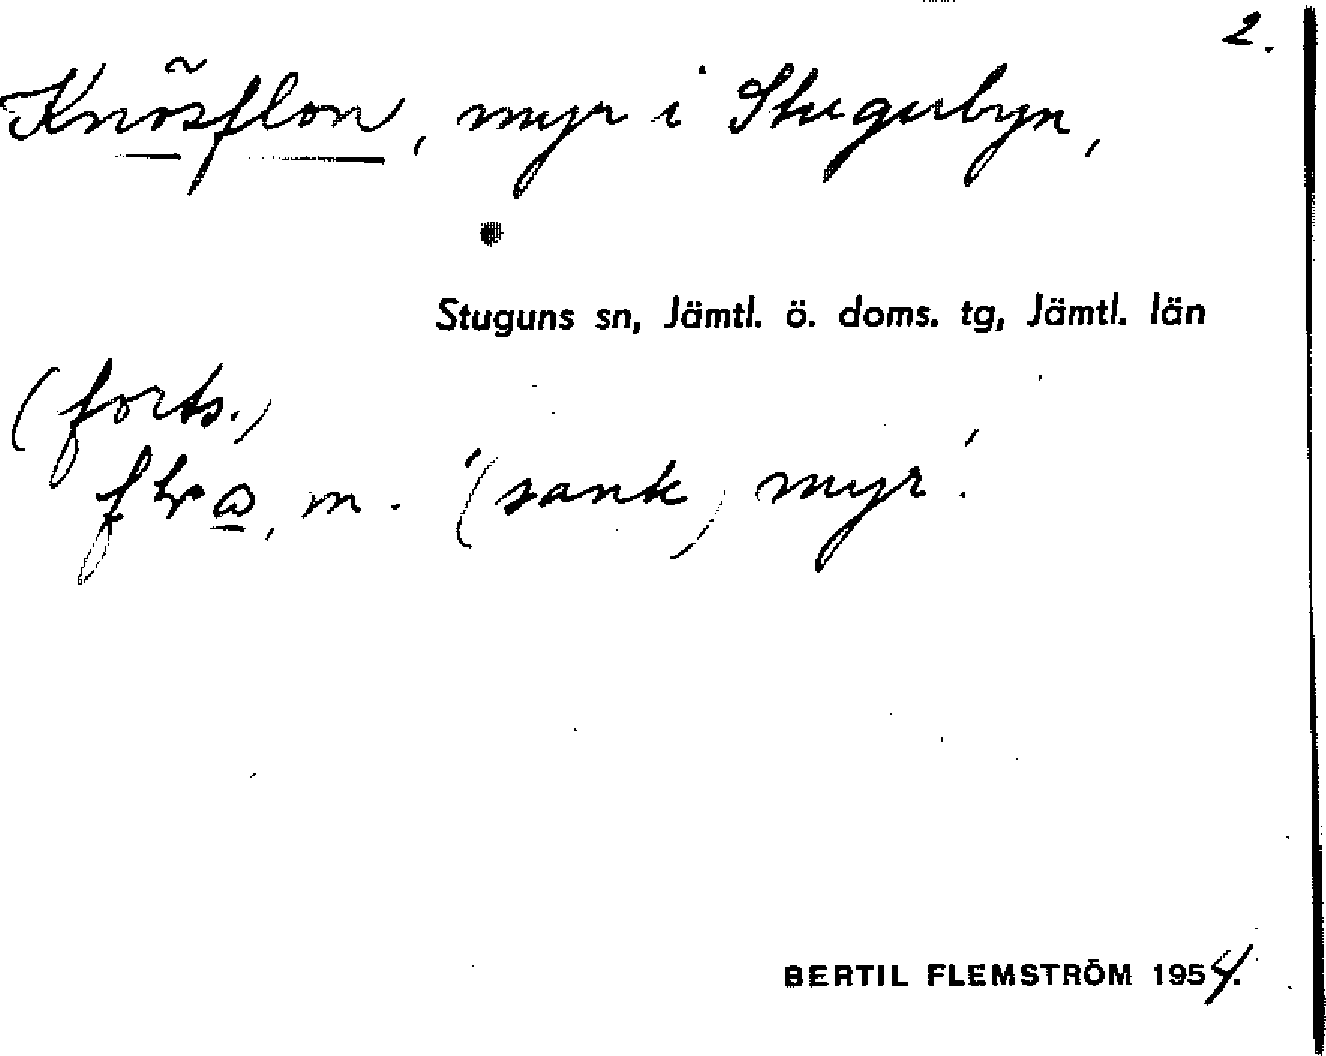 2.
Knösflon, myr i Stugubyn,
Stuguns sn, Jämtl. ö. doms. tg, Jämtl. län
(forts.)
m. '(sank) myr'.
BERTIL FLEMSTRÖM 1954.